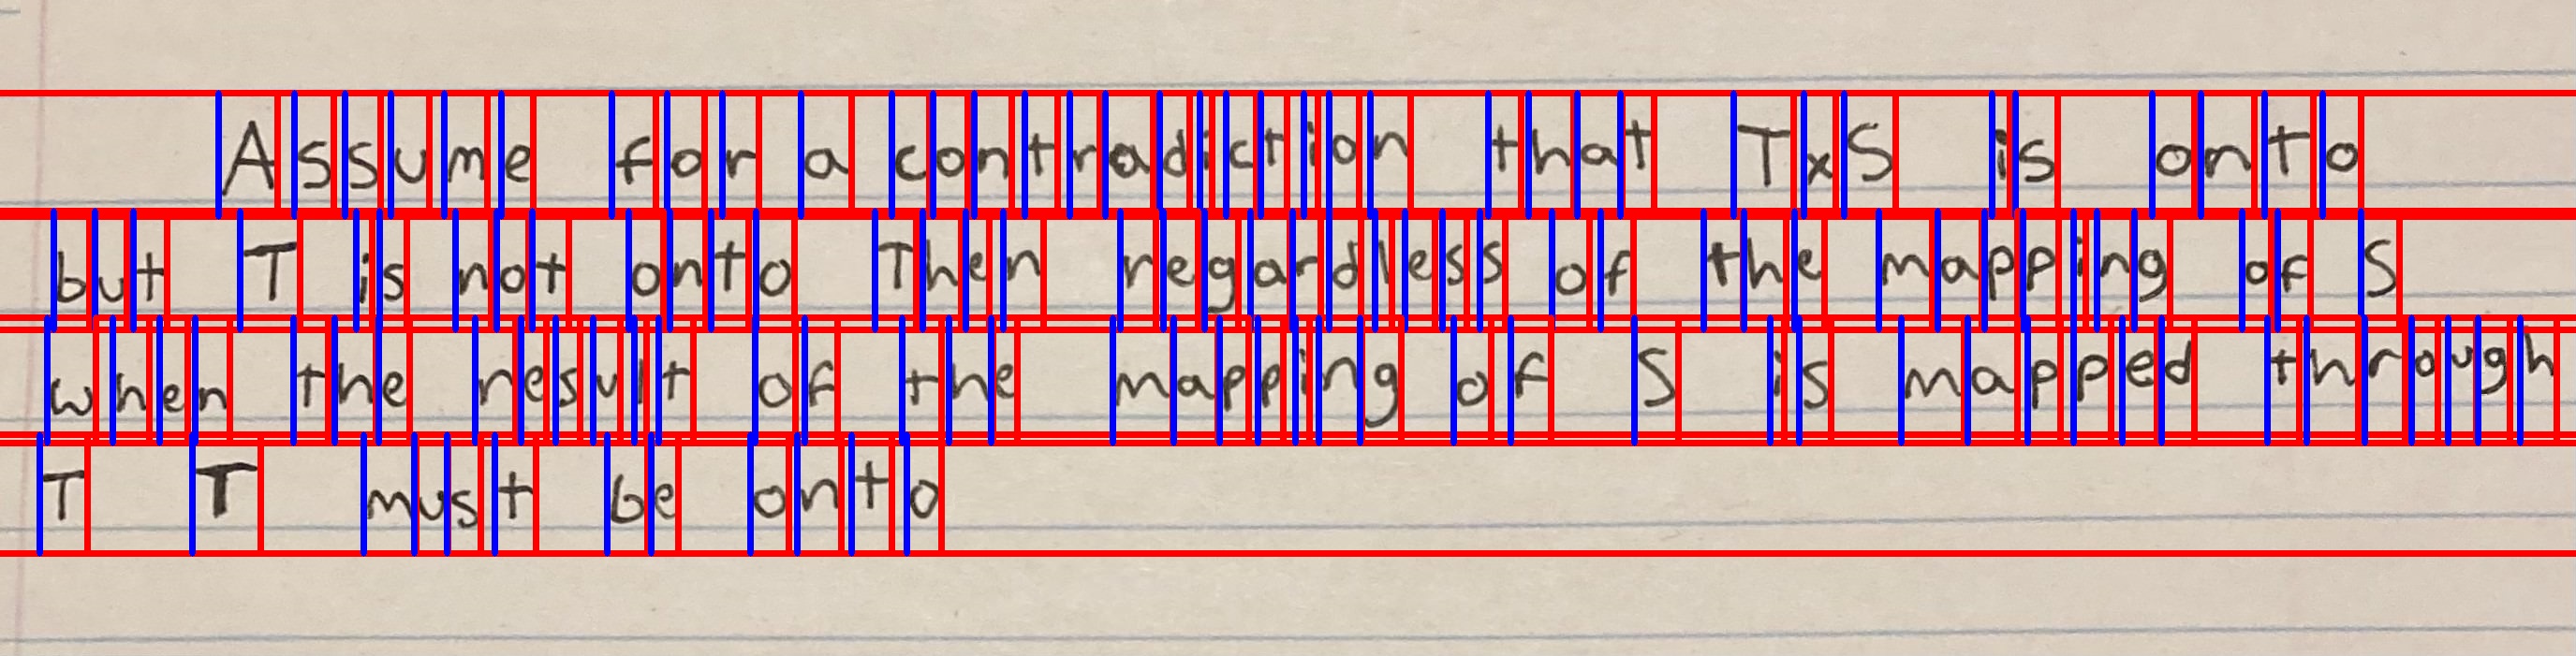 Assume for a contradiction that TxS is onto
but T is not onto Then regardless of the mapping of S
when the result of the mapping of S is mapped through
T T must be onto